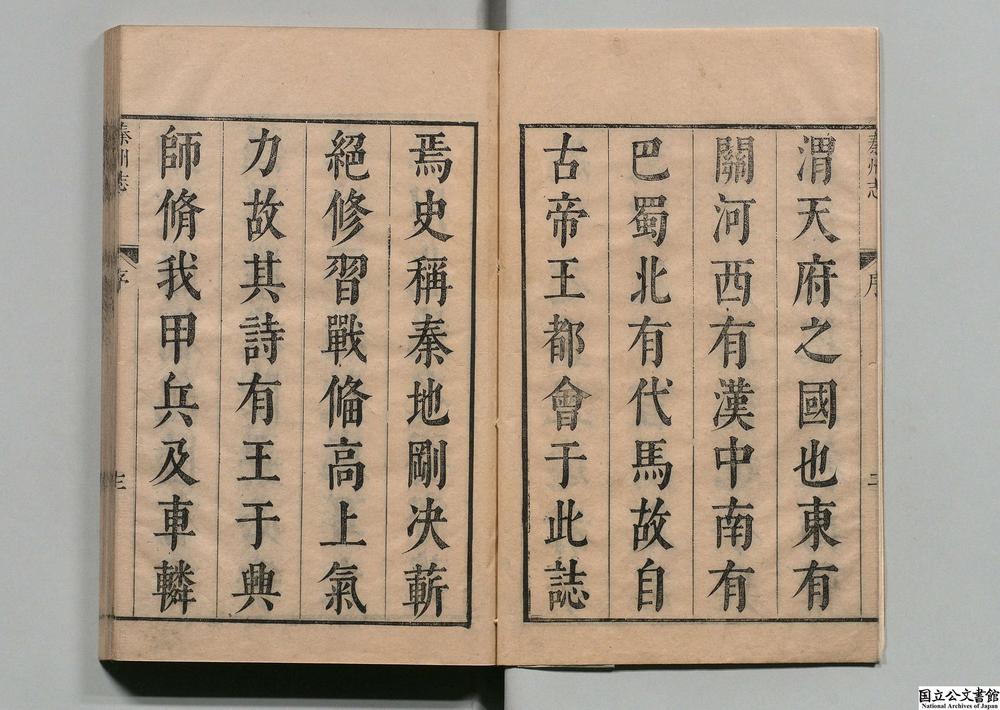 秦州志
序
渭天府之國也東有
關河西有漢中南有
巴蜀北有代馬故自
古帝王都會于此誌
焉史稱秦地剛决蕲
絕修習戰俻高上氣
力故其詩有王于興
師脩我甲兵及車轔
秦州志
序
三
国立公文書館
National Archives of Japan